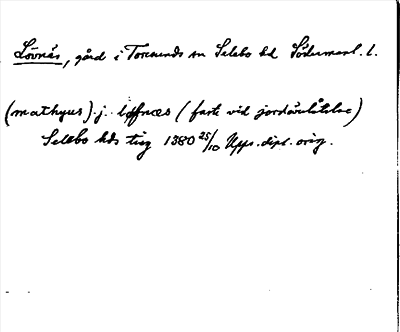 Lövnäs, gård i Toresunds sn Selebo hd Södermanl. l.
(mathyus) j. løffnæs (faste vid jordöverlåtelse)
Selebo hds ting 1380 25/10 Upps. dipl. orig.